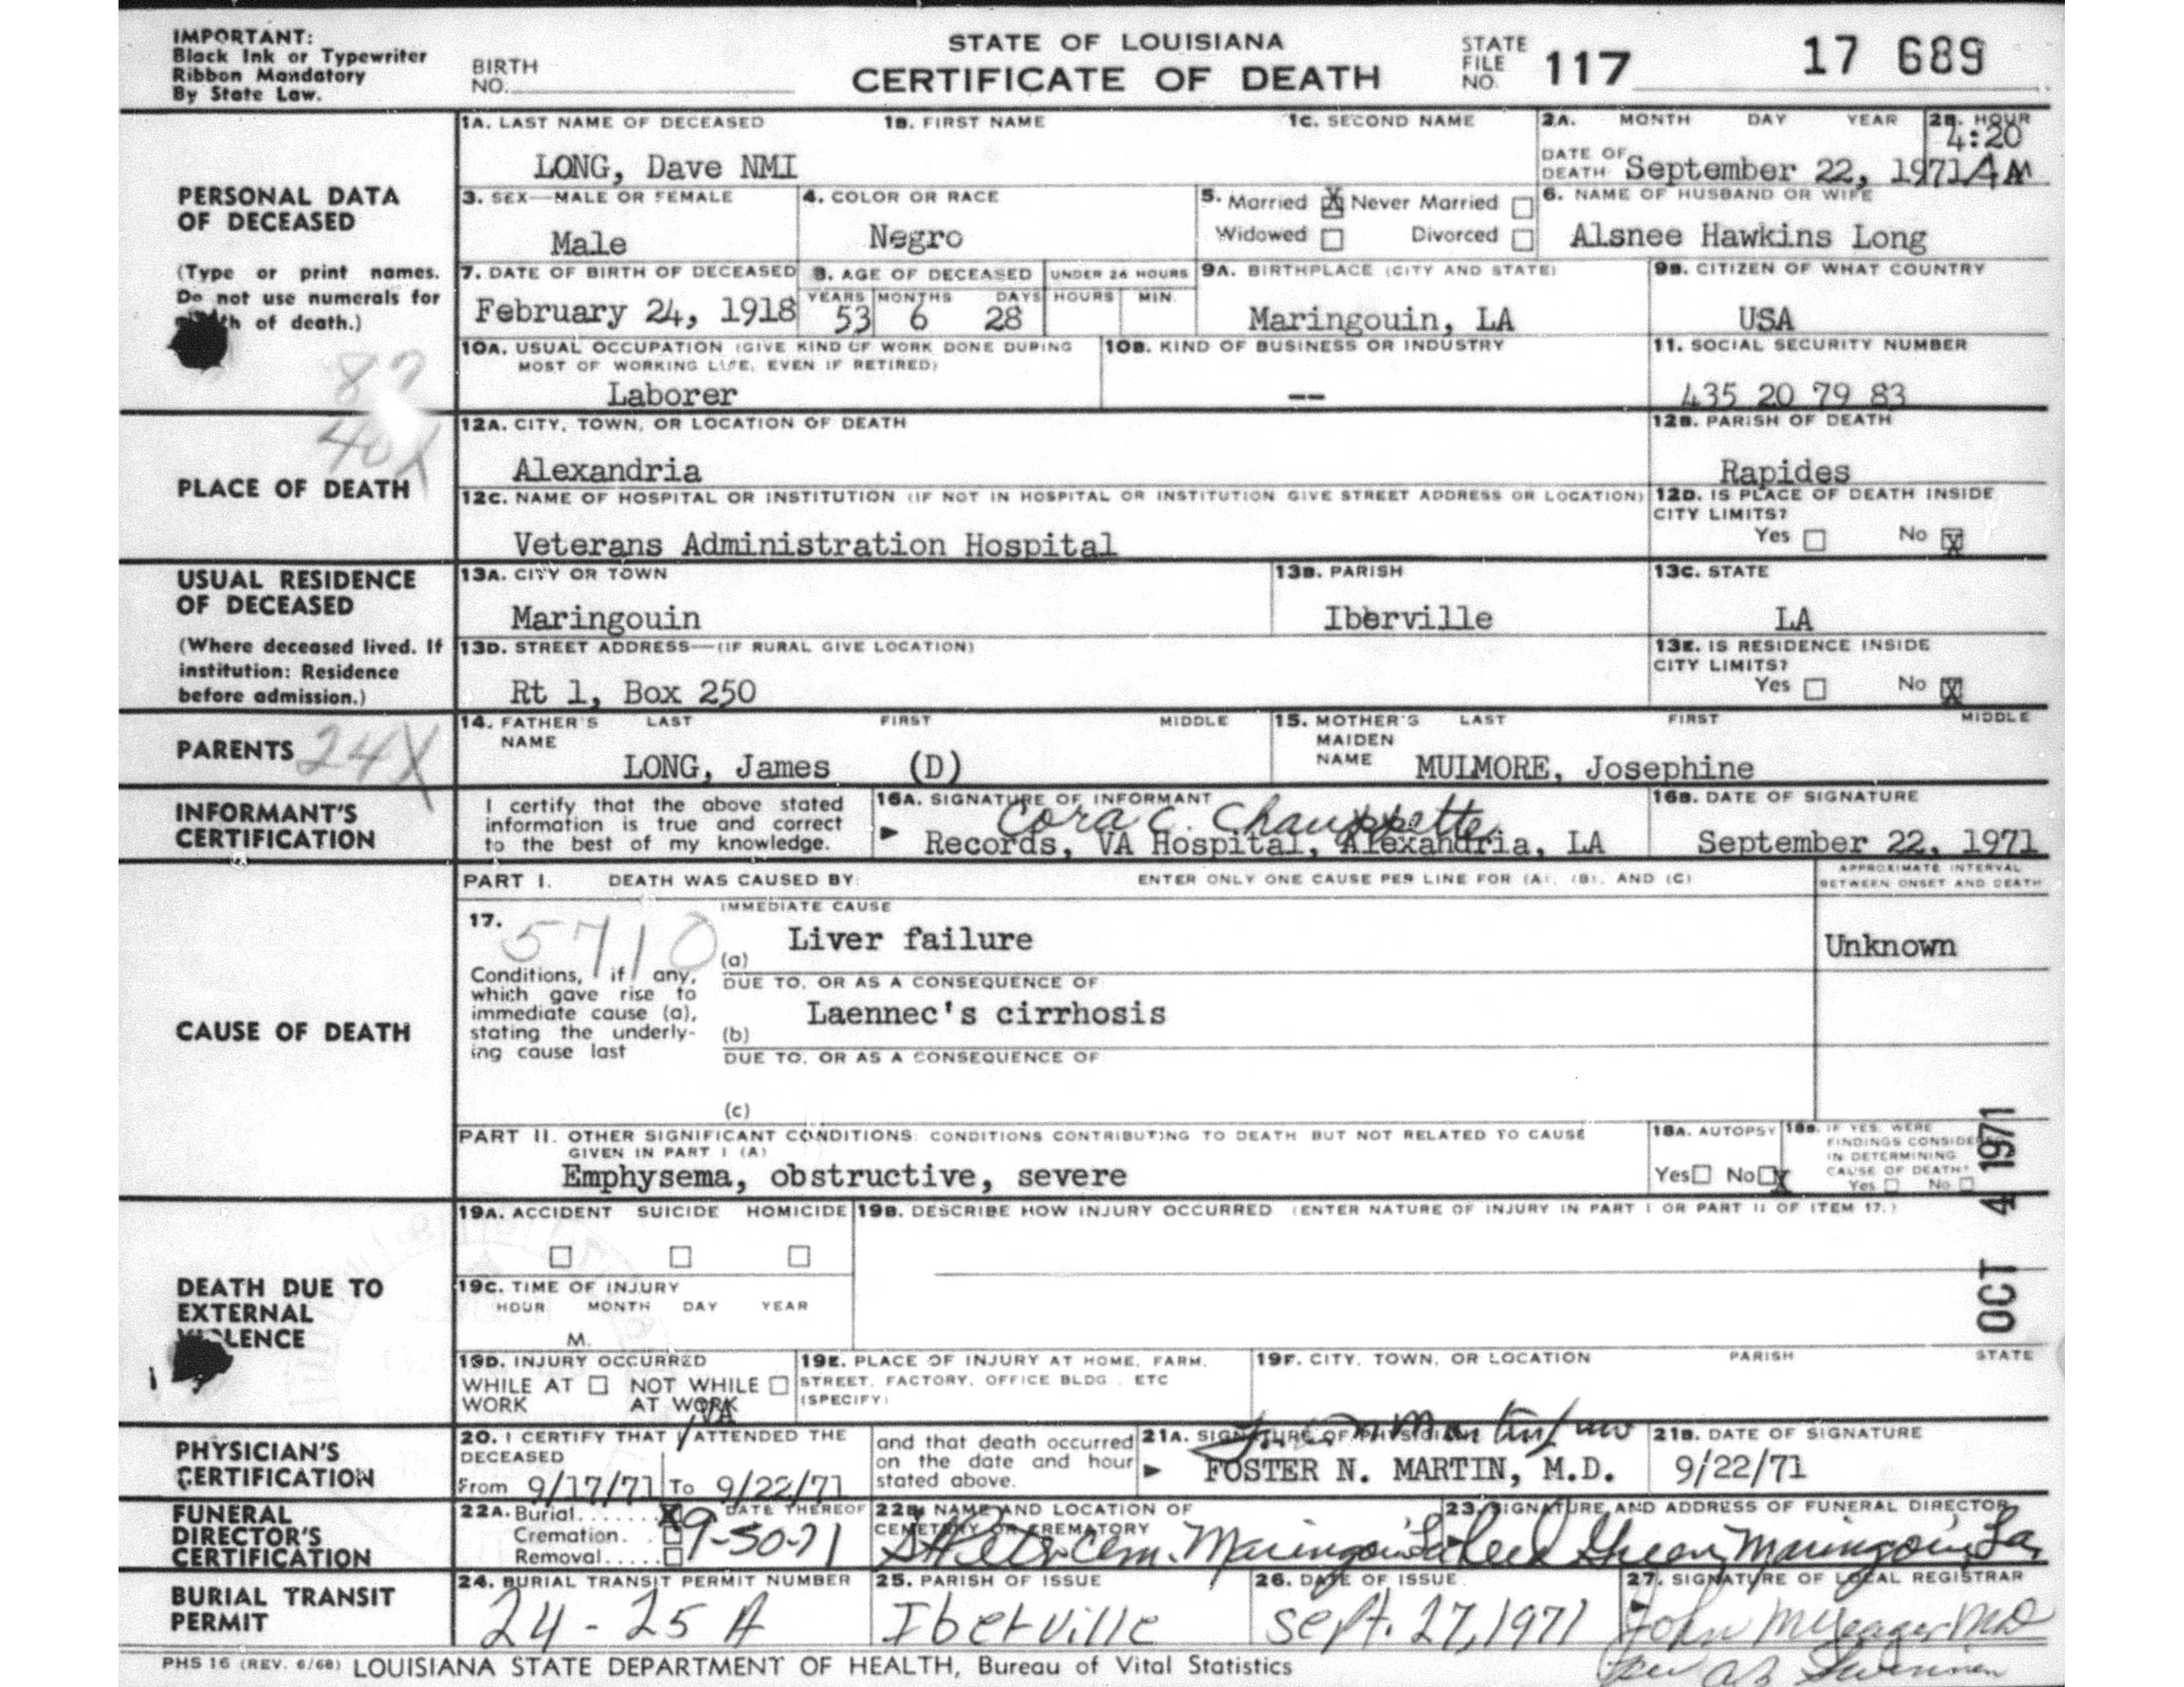 IMPORTANT:
Black Ink or Typewriter
Ribbon Mandatory
By State Law.
BIRTH
NO.
STATE OF LOUISIANA
CERTIFICATE OF DEATH
STATE
FILE
NO.
117
17 689
PERSONAL DATA
OF DECEASED
(Type or print names.
Do not use numerals for
of death.)
87
40X
1A. LAST NAME OF DECEASED 1B. FIRST NAME 1C. SECOND NAME
LONG, Dave NMI
2A. MONTH DAY YEAR
DATE OF
DEATH September 22, 1971
2B. HOUR
4:20
AM
3. SEX—MALE OR FEMALE
Male
4. COLOR OR RACE
Negro
5. Married X Never Married
Widowed Divorced
6. NAME OF HUSBAND OR WIFE
Alsnee Hawkins Long
7. DATE OF BIRTH OF DECEASED
February 24, 1918
8. AGE OF DECEASED UNDER 24 HOURS
YEARS MONTHS DAYS HOURS MIN.
53 6 28
9A. BIRTHPLACE (CITY AND STATE)
Maringouin, LA
9B. CITIZEN OF WHAT COUNTRY
USA
10A. USUAL OCCUPATION (GIVE KIND OF WORK DONE DURING
MOST OF WORKING LIFE, EVEN IF RETIRED)
Laborer
10B. KIND OF BUSINESS OR INDUSTRY
--
11. SOCIAL SECURITY NUMBER
435 20 79 83
PLACE OF DEATH
12A. CITY, TOWN, OR LOCATION OF DEATH
Alexandria
12B. PARISH OF DEATH
Rapides
12C. NAME OF HOSPITAL OR INSTITUTION (IF NOT IN HOSPITAL OR INSTITUTION GIVE STREET ADDRESS OR LOCATION)
Veterans Administration Hospital
12D. IS PLACE OF DEATH INSIDE
CITY LIMITS?
Yes No X
USUAL RESIDENCE
OF DECEASED
(Where deceased lived. If
institution: Residence
before admission.)
13A. CITY OR TOWN
Maringouin
13B. PARISH
Iberville
13C. STATE
LA
13D. STREET ADDRESS—(IF RURAL GIVE LOCATION)
Rt 1, Box 250
13E. IS RESIDENCE INSIDE
CITY LIMITS?
Yes No X
PARENTS
24X
14. FATHER'S LAST FIRST MIDDLE
NAME
LONG, James (D)
15. MOTHER'S LAST FIRST MIDDLE
MAIDEN
NAME MULMORE, Josephine
INFORMANT'S
CERTIFICATION
I certify that the above stated
information is true and correct
to the best of my knowledge.
16A. SIGNATURE OF INFORMANT
Cora C.
Records, VA Hospital, Alexandria, LA
16B. DATE OF SIGNATURE
September 22, 1971
CAUSE OF DEATH
PART I. DEATH WAS CAUSED BY: ENTER ONLY ONE CAUSE PER LINE FOR (A), (B), AND (C)
APPROXIMATE INTERVAL
BETWEEN ONSET AND DEATH
17.
5710
Conditions, if any,
which gave rise to
immediate cause (a),
stating the underly-
ing cause last
IMMEDIATE CAUSE
(a) Liver failure
Unknown
DUE TO, OR AS A CONSEQUENCE OF
(b) Laennec's cirrhosis
DUE TO, OR AS A CONSEQUENCE OF
(c)
PART II. OTHER SIGNIFICANT CONDITIONS: CONDITIONS CONTRIBUTING TO DEATH BUT NOT RELATED TO CAUSE
GIVEN IN PART I (A)
Emphysema, obstructive, severe
18A. AUTOPSY
Yes No X
18B. IF YES, WERE
FINDINGS CONSIDE
IN DETERMINING
CAUSE OF DEATH?
Yes No
OCT 4 1971
DEATH DUE TO
EXTERNAL
VIOLENCE
19A. ACCIDENT SUICIDE HOMICIDE
19B. DESCRIBE HOW INJURY OCCURRED (ENTER NATURE OF INJURY IN PART I OR PART II OF ITEM 17.)
19C. TIME OF INJURY
HOUR MONTH DAY YEAR
M.
19D. INJURY OCCURRED
WHILE AT NOT WHILE
WORK AT WORK
19E. PLACE OF INJURY AT HOME, FARM,
STREET, FACTORY, OFFICE BLDG., ETC
(SPECIFY)
19F. CITY, TOWN, OR LOCATION PARISH STATE
PHYSICIAN'S
CERTIFICATION
VA
20. I CERTIFY THAT I ATTENDED THE
DECEASED
From 9/17/71 To 9/22/71
and that death occurred
on the date and hour
stated above.
21A. SIGNATURE OF PHYSICIAN
FOSTER N. MARTIN, M.D.
21B. DATE OF SIGNATURE
9/22/71
FUNERAL
DIRECTOR'S
CERTIFICATION
22A. Burial....... X DATE THEREOF
Cremation.
Removal.....
9-30-71
22B. NAME AND LOCATION OF
CEMETERY OR CREMATORY
Cem. Maringouin La
23. SIGNATURE AND ADDRESS OF FUNERAL DIRECTOR
Green, Maringouin, La.
BURIAL TRANSIT
PERMIT
24. BURIAL TRANSIT PERMIT NUMBER
24-25 A
25. PARISH OF ISSUE
Iberville
26. DATE OF ISSUE
Sept. 27, 1971
27. SIGNATURE OF LOCAL REGISTRAR
John
PHS 16 (REV. 6/68) LOUISIANA STATE DEPARTMENT OF HEALTH, Bureau of Vital Statistics